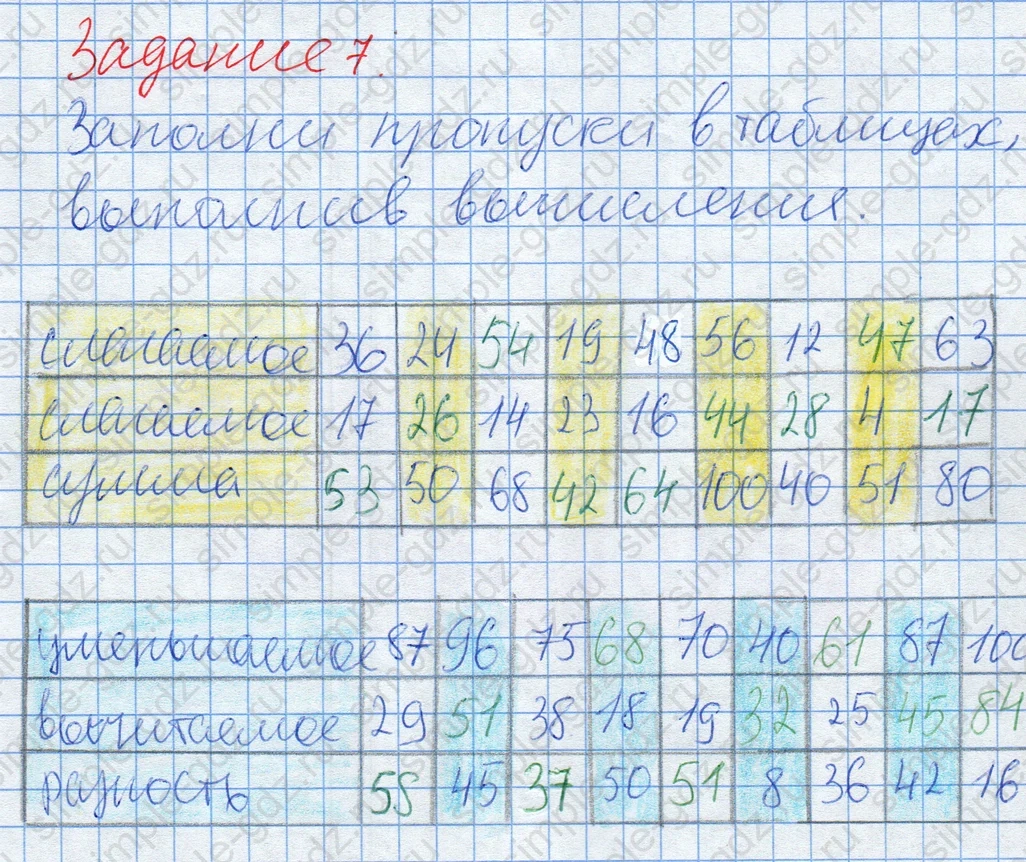 Задание 7.
Заполни пропуски в таблицах,
выполнив вычисления.
слагаемое 36 24 54 19 48 56 12 47 63
слагаемое 17 26 14 23 16 44 28 4 17
сумма 53 50 68 42 64 100 40 51 80
уменьшаемое 87 96 75 68 70 40 61 87 100
вычитаемое 29 51 38 18 19 32 25 45 84
разность 58 45 37 50 51 8 36 42 16
simple-gdz.ru